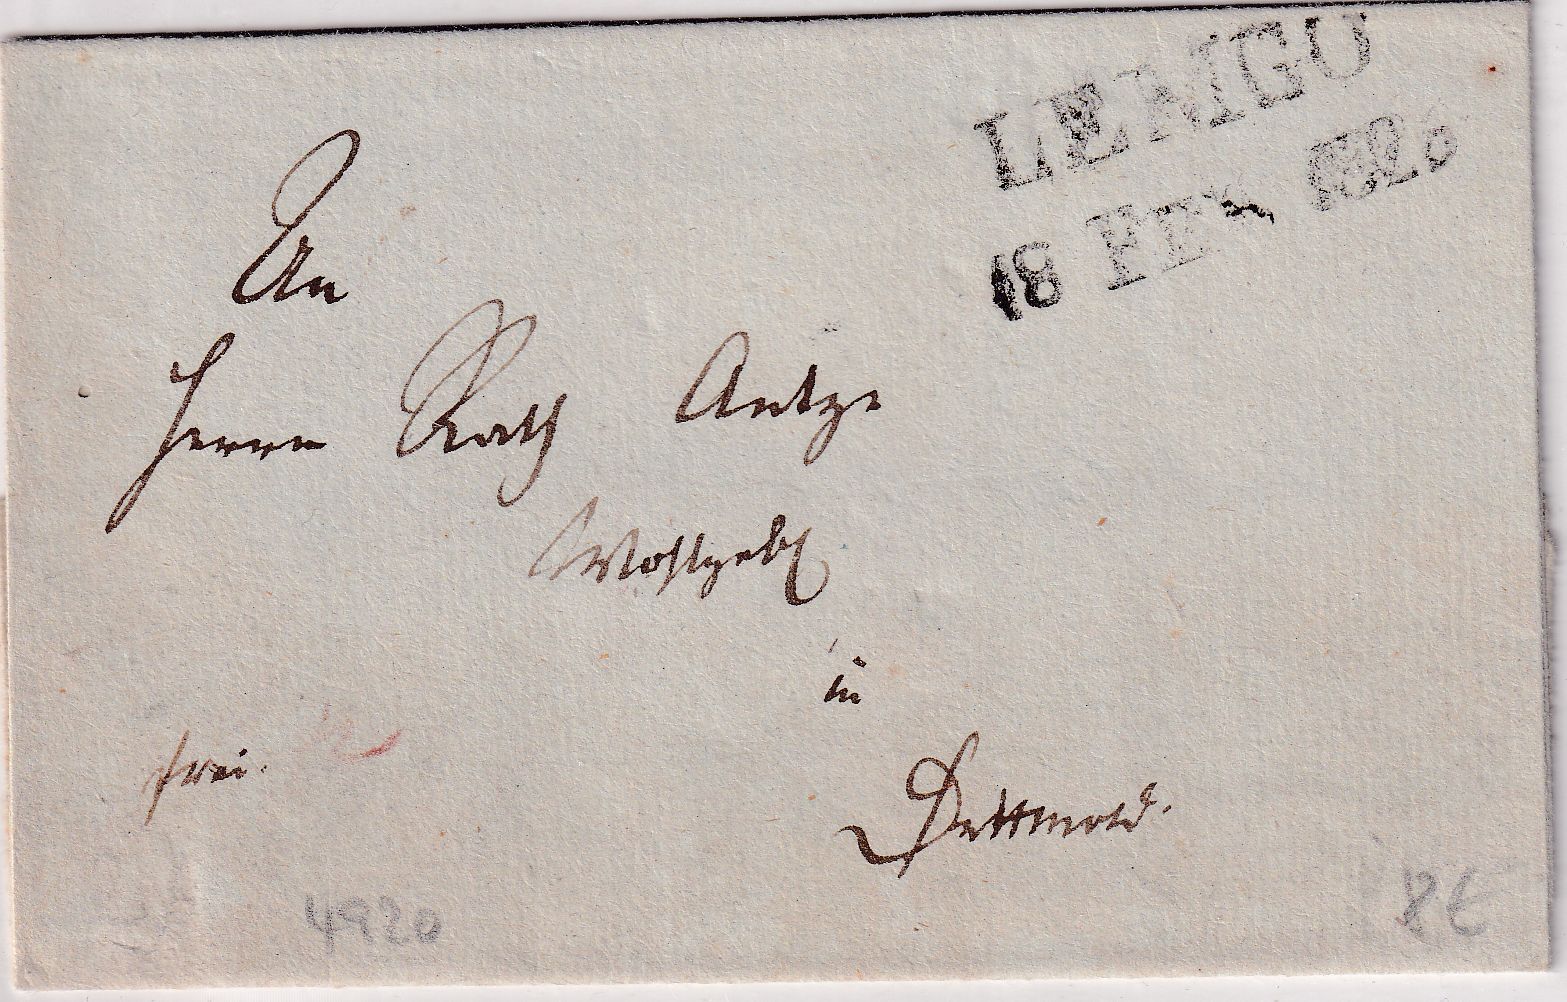 LEMGO
18 FEB 1826
An
Herrn Rath Antze
Wohlgeb
in
Dettmold.
frei.
4920
8€